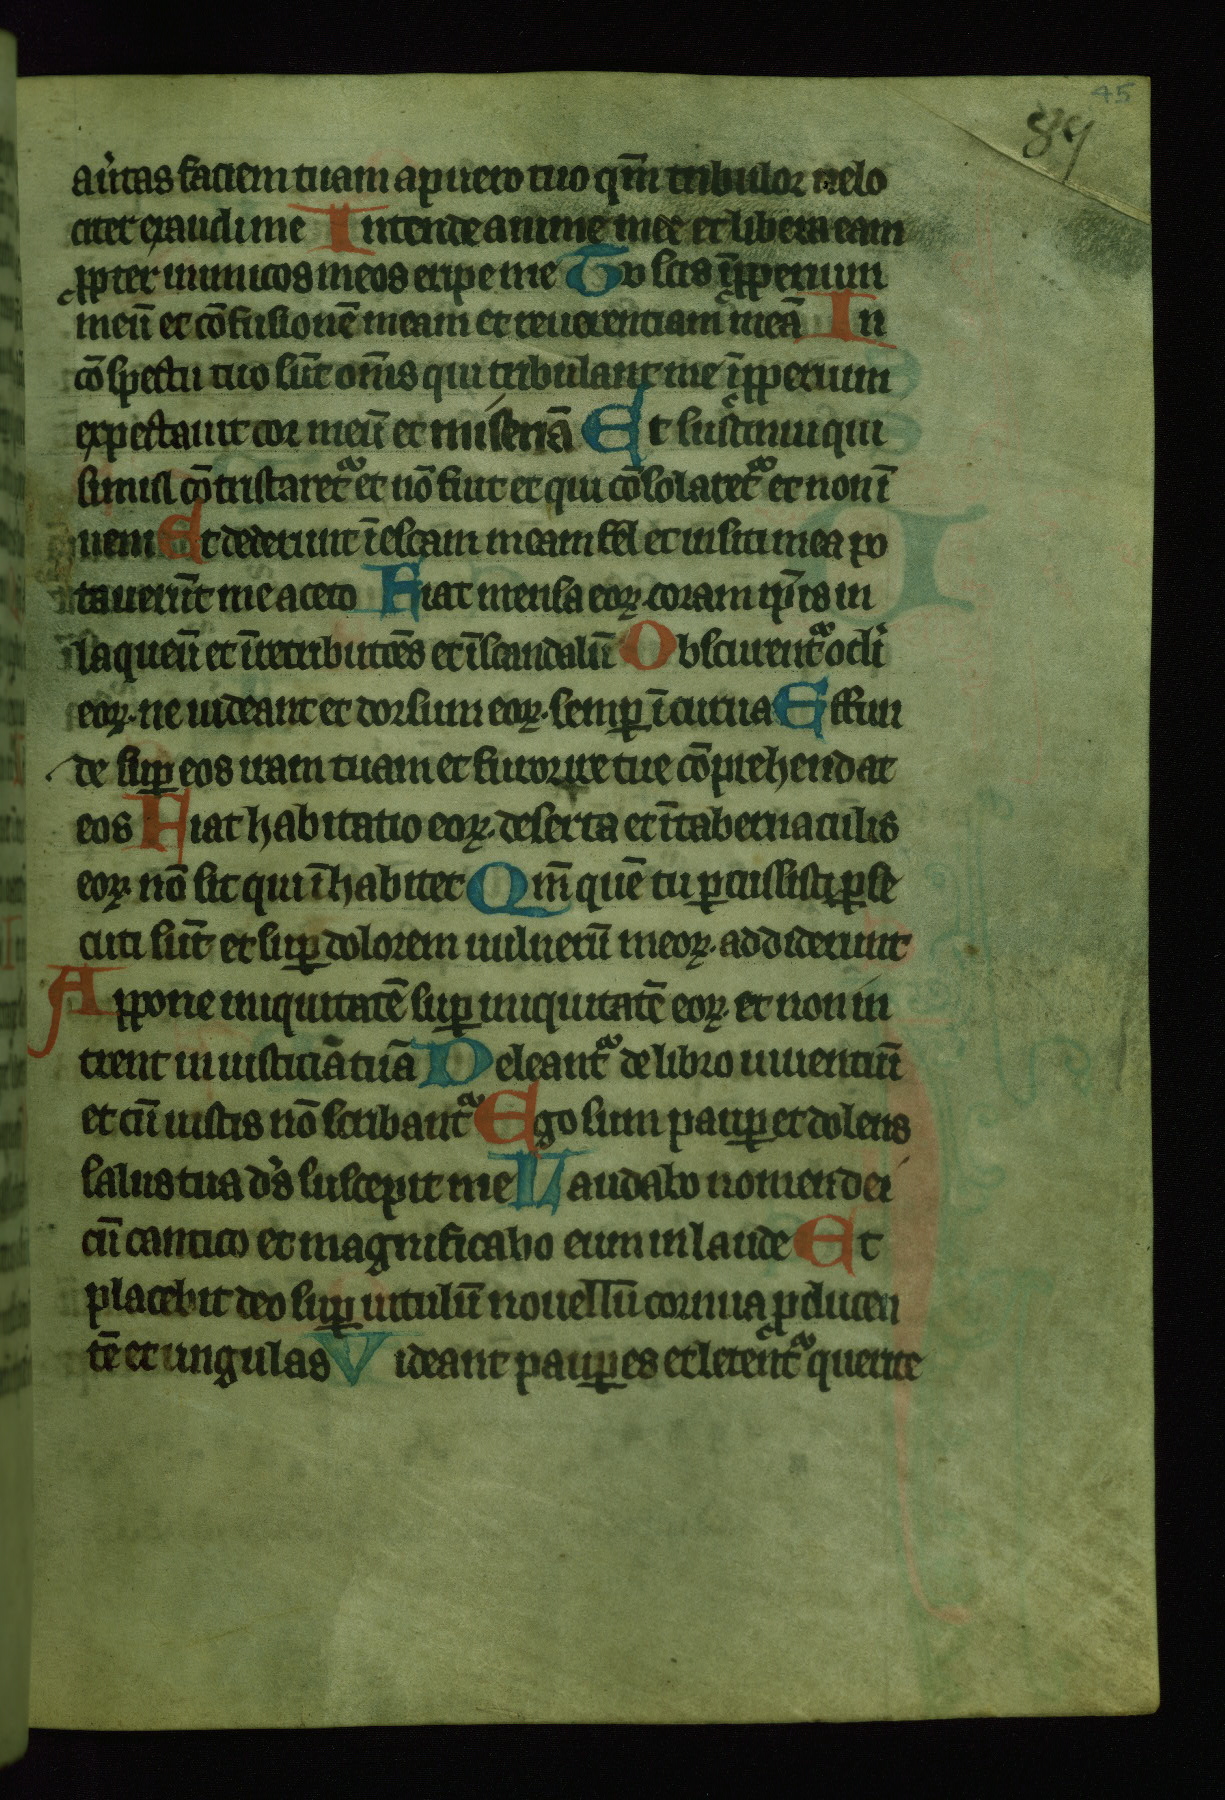 45
89
au̾tas faciem tuam a puero tuo qm̄ tribulor uelo
citer exaudi me Intende anime mee et libera eam
ꝓpter inimicos meos eripe me Tu scis īꝓperium
meū et cōfusionē meam et reuerentiam meā In
cōspectu tuo sūt om̄s qui tribulant me īꝓperium
expectauit cor meū et miseriā Et sustinui qui
simul cōtristaret᷑ et nō fuit et qui cōsolaret᷑ et non ī
ueni Et dederunt ī escam meam fel et in siti mea po
tauerūt me aceto Fiat mensa eoꝝ coram ip̄is in
laqueū et ī retributōes et ī scandalū Obscurent᷑ oc̄li
eoꝝ ne uideant et dorsum eoꝝ semꝑ ī curua Effun
de suꝑ eos iram tuam et furor ire tue cōprehendat
eos Fiat habitatio eoꝝ deserta et ī tabernaculis
eoꝝ nō sit qui īhabitet Qm̄ quē tu ꝑcussisti ꝑse
cuti sūt et suꝑ dolorem uulnerū meoꝝ addiderunt
Appone iniquitatē suꝑ iniquitatē eoꝝ et non in
trent in iusticiā tuā Deleant᷑ de libro uiuentiū
et cū iustis nō scribant᷑ Ego sum pauꝑ et dolens
salus tua d̄s suscepit me Laudabo nomen dei
cū cantico et magnificabo eum in laude Et
placebit deo suꝑ uitulū nouellū cornua ꝓducen
tē et ungulas Videant pauꝑes et letent᷑ querite